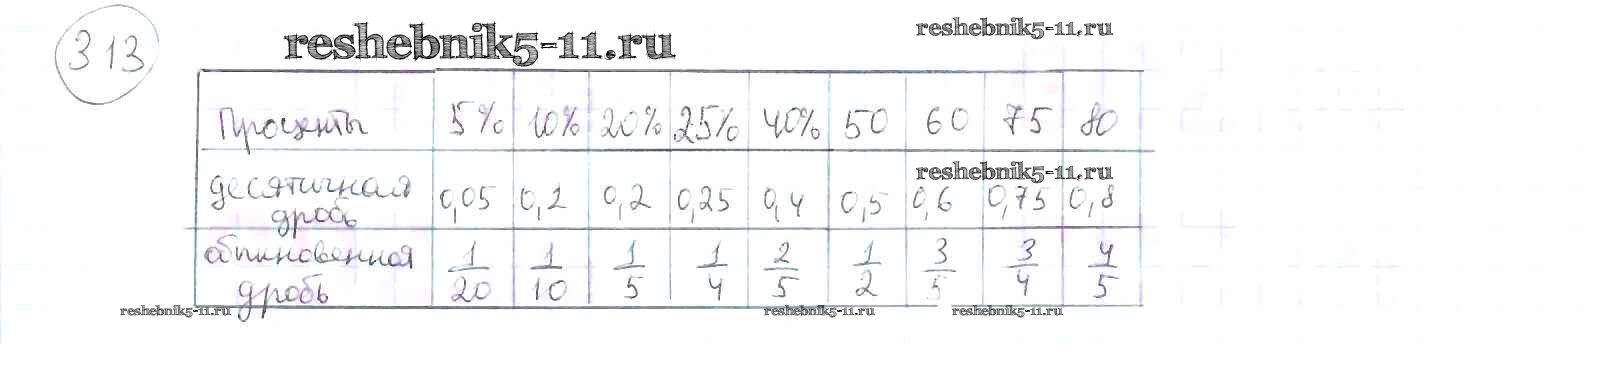 313
reshebnik5-11.ru
reshebnik5-11.ru
Проценты 5% 10% 20% 25% 40% 50 60 75 80
reshebnik5-11.ru
десятичная дробь 0,05 0,1 0,2 0,25 0,4 0,5 0,6 0,75 0,8
обыкновенная дробь 1/20 1/10 1/5 1/4 2/5 1/2 3/5 3/4 4/5
reshebnik5-11.ru
reshebnik5-11.ru
reshebnik5-11.ru